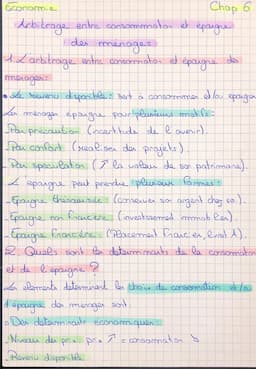 Economie Chap 6
Arbitrage entre consommation et épargne
des ménages
1. L'arbitrage entre consommation et épargne des
ménages:
Le Revenu disponible: sert à consommer et/ou épargner
Les ménages épargne pour plusieurs motifs:
- Par précaution (incertitude de l'avenir).
- Par confort (réaliser des projets).
- Par spéculation (↗ la valeur de son patrimoine).
L'épargne peut prendre plusieurs formes:
- Epargne thésaurisée (conserver son argent chez soi).
- Epargne non financière (investissement immobilier).
- Epargne financière (Placement financier, livret A).
2. Quels sont les déterminants de la consommation
et de l'épargne ?
Les éléments déterminant les choix de consommation et/ou
d'épargne des ménages sont:
Des déterminants économiques:
- Niveau des prix: prix ↗ = consommation ↘
- Revenu disponible